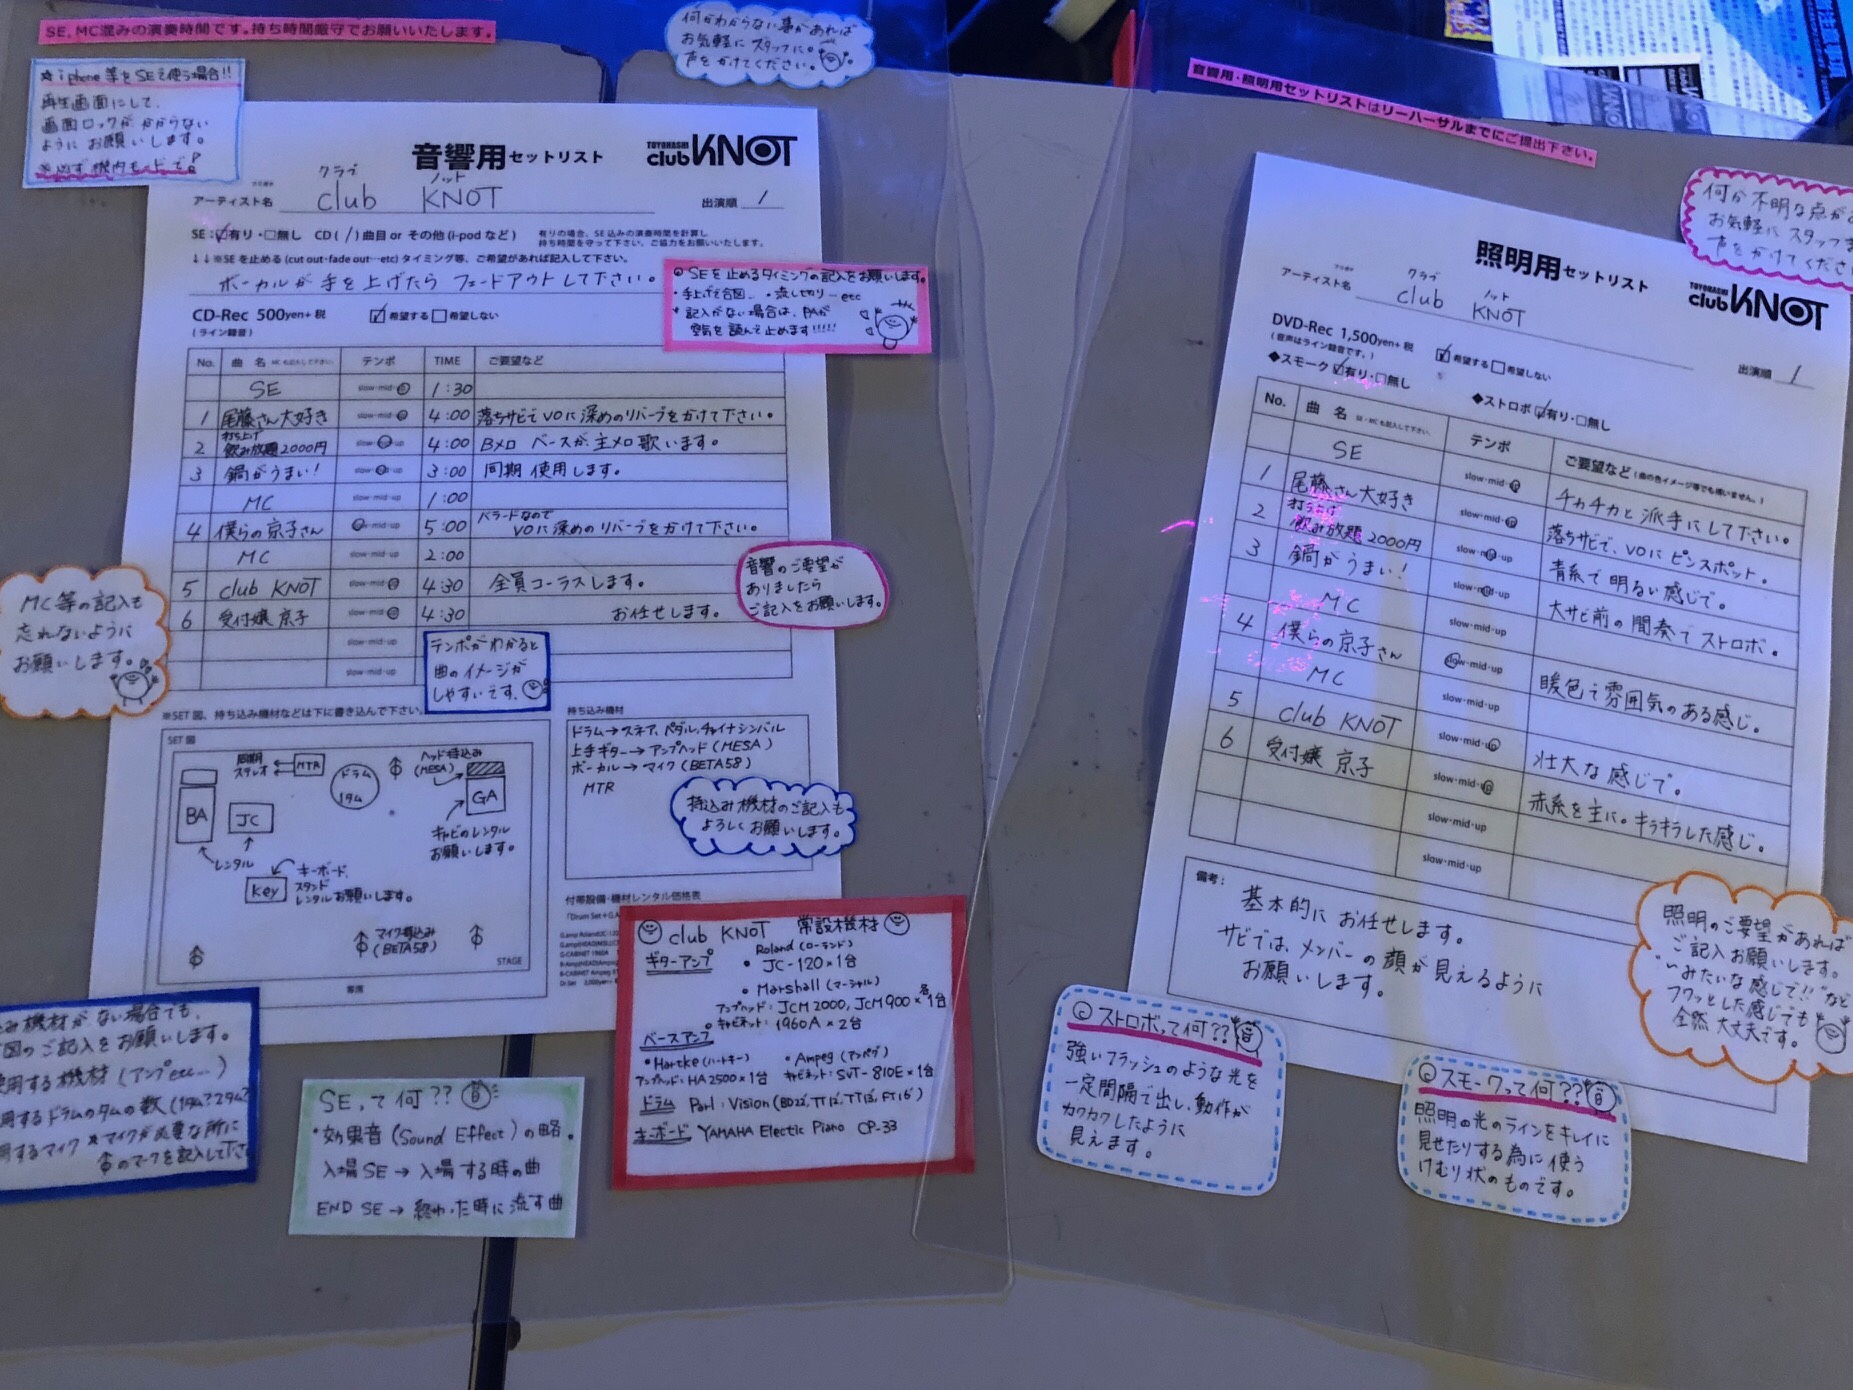 SE, MC混みの演奏時間です。持ち時間厳守でお願いいたします。
☆iphone等をSEで使う場合!!
再生画面にして、
画面ロックがかからない
ようにお願いします。
※必ず機内モードで!
何かわからない事があれば
お気軽にスタッフに。
声をかけてください。
音響用セットリスト
TOYOHASHI
club KNOT
クラブ ノット
アーティスト名 club KNOT
出演順 1
SE:☑有り・□無し CD( / )曲目 or その他(i-podなど)
有りの場合、SE込みの演奏時間を計算し
持ち時間を守って下さい。ご協力をお願いいたします。
↓↓※SEを止める(cut out・fade out…etc)タイミング等、ご希望があれば記入して下さい。
ボーカルが手を上げたらフェードアウトして下さい。
CD-Rec 500yen+税
(ライン録音)
☑希望する□希望しない
SEを止めるタイミングの記入をお願いします。
・手上げ合図… ・流し切り…etc
・記入がない場合は、PAが
空気を読んで止めます!!!!!
No. 曲名 MCも記入して下さい。 テンポ TIME ご要望など
SE slow・mid・up 1:30
1 尾藤さん大好き slow・mid・up 4:00 落ちサビでVOに深めのリバーブをかけて下さい。
2 打ち上げ飲み放題2000円 slow・mid・up 4:00 Bメロ ベースが主メロ歌います。
3 鍋がうまい! slow・mid・up 3:00 同期使用します。
MC slow・mid・up 1:00
4 僕らの京子さん slow・mid・up 5:00 バラードなのでVOに深めのリバーブをかけて下さい。
MC slow・mid・up 2:00
5 club KNOT slow・mid・up 4:30 全員コーラスします。
6 受付嬢 京子 slow・mid・up 4:30 お任せします。
slow・mid・up
slow・mid・up
MC等の記入も
忘れないように
お願いします。
テンポがわかると
曲のイメージが
しやすいです。
音響のご要望が
ありましたら
ご記入をお願いします。
※SET図、持ち込み機材などは下に書き込んで下さい。
SET図
同期
ステレオ
MTR
ドラム
1タム
ヘッド持込み
(MESA)
BA
JC
GA
レンタル
キャビのレンタル
お願いします。
Key
キーボード、
スタンド
レンタルお願いします。
マイク持込み
(BETA58)
STAGE
客席
持ち込み機材
ドラム→スネア、ペダル、チャイナシンバル
上手ギター→アンプヘッド(MESA)
ボーカル→マイク(BETA58)
MTR
持込み機材のご記入も
よろしくお願いします。
付帯設備・機材レンタル価格表
club KNOT 常設機材
ギターアンプ
Roland(ローランド)
・JC-120×1台
・Marshall(マーシャル)
アンプヘッド:JCM2000, JCM900×各1台
キャビネット:1960A×2台
ベースアンプ
・Hartke(ハートキー)
アンプヘッド:HA2500×1台
・Ampeg(アンペグ)
キャビネット:SVT-810E×1台
ドラム Parl:Vision(BD22",TT12",TT13",FT16")
キーボード YAMAHA Electic Piano CP-33
み機材がない場合でも、
図のご記入をお願いします。
使用する機材(アンプetc…)
用するドラムのタムの数(1タム?2タム?
用するマイク ※マイクが必要な所に
のマークを記入して下さ
SEって何??
・効果音(Sound Effect)の略。
入場SE→入場する時の曲
END SE→終わった時に流す曲
音響用・照明用セットリストはリーハーサルまでにご提出下さい。
何か不明な点が
お気軽にスタッフま
声をかけてください
照明用セットリスト
TOYOHASHI
club KNOT
クラブ ノット
アーティスト名 club KNOT
DVD-Rec 1,500yen+税
(音声はライン録音です。)
☑希望する□希望しない
出演順 1
◆スモーク☑有り・□無し
◆ストロボ☑有り・□無し
No. 曲名 SE・MCも記入して下さい。 テンポ ご要望など(曲の色イメージ等でも構いません。)
SE slow・mid・up チカチカと派手にして下さい。
1 尾藤さん大好き slow・mid・up 落ちサビで、VOにピンスポット。
2 打ち上げ飲み放題2000円 slow・mid・up 青系で明るい感じで。
3 鍋がうまい! slow・mid・up 大サビ前の間奏でストロボ。
MC slow・mid・up
4 僕らの京子さん slow・mid・up 暖色で雰囲気のある感じ。
MC slow・mid・up
5 club KNOT slow・mid・up 壮大な感じで。
6 受付嬢 京子 slow・mid・up 赤系を主に。キラキラした感じ。
slow・mid・up
slow・mid・up
備考:
基本的にお任せします。
サビでは、メンバーの顔が見えるように
お願いします。
照明のご要望があれば
ご記入お願いします。
"〜みたいな感じで!!"など
フワッとした感じでも
全然大丈夫です。
ストロボって何??
強いフラッシュのような光を
一定間隔で出し、動作が
カクカクしたように
見えます。
スモークって何??
照明の光のラインをキレイに
見せたりする為に使う
けむり状のものです。